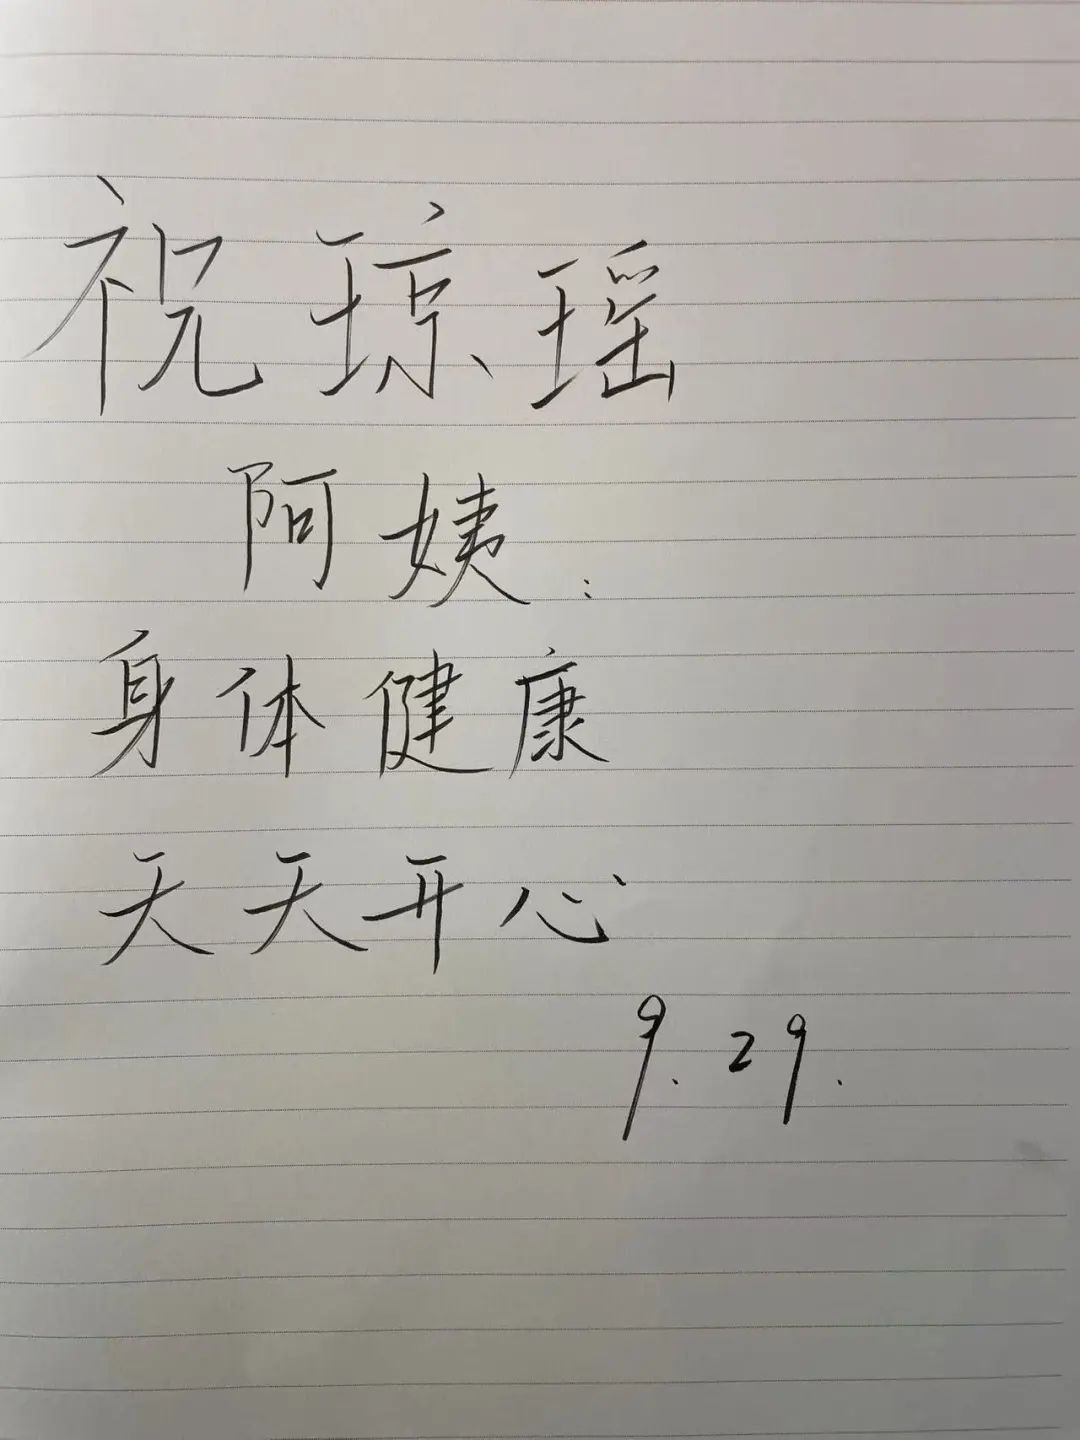 祝琼瑶
阿姨:
身体健康
天天开心
9.29.